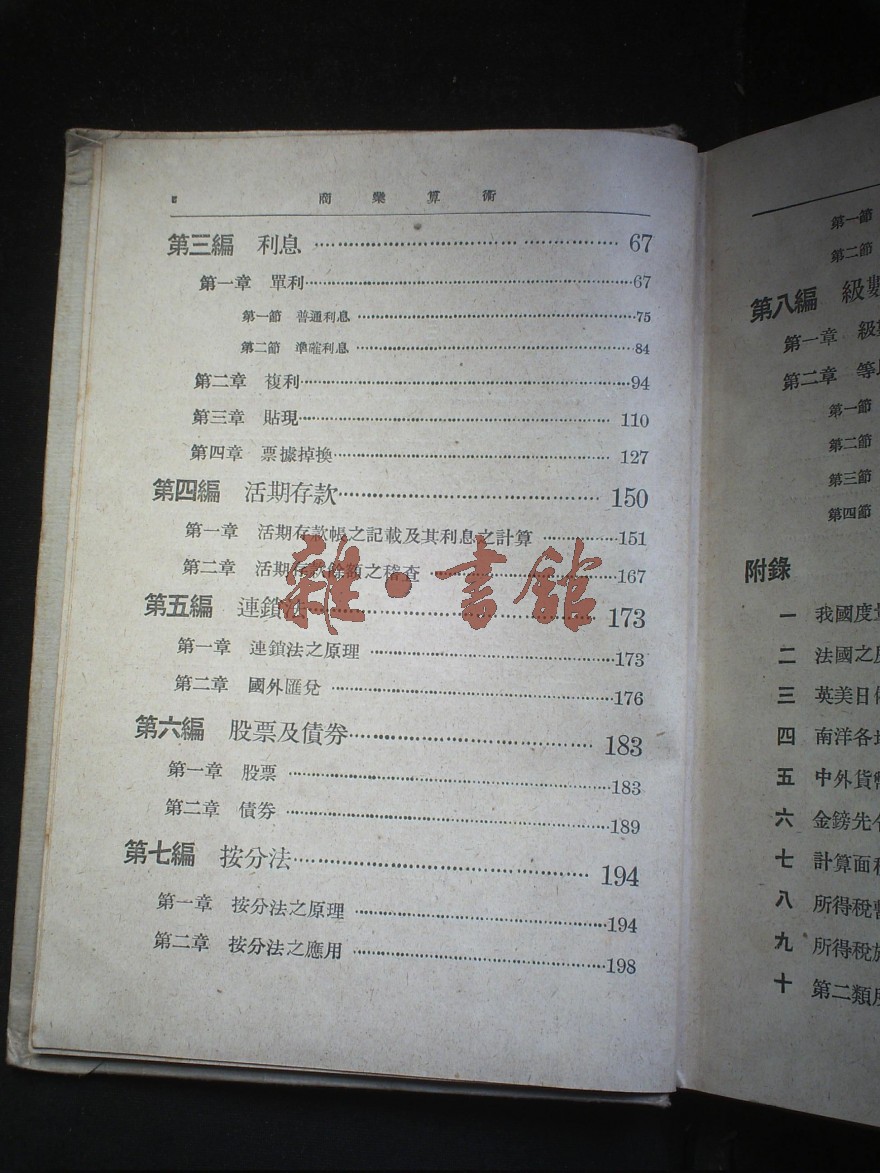 商業算術
第三編 利息 67
第一章 單利 67
第一節 普通利息 75
第二節 準確利息 84
第二章 複利 94
第三章 貼現 110
第四章 票據掉換 127
第四編 活期存款 150
第一章 活期存款帳之記載及其利息之計算 151
第二章 活期存款餘額之稽查 167
雜·書館
第五編 連鎖法 173
第一章 連鎖法之原理 173
第二章 國外匯兌 176
第六編 股票及債券 183
第一章 股票 183
第二章 債券 189
第七編 按分法 194
第一章 按分法之原理 194
第二章 按分法之應用 198
第一節
第二節
第八編 級數
第一章 級
第二章 等
第一節
第二節
第三節
第四節
附錄
一 我國度
二 法國之
三 英美日
四 南洋各
五 中外貨幣
六 金鎊先令
七 計算面積
八 所得稅暫
九 所得稅施
十 第二類